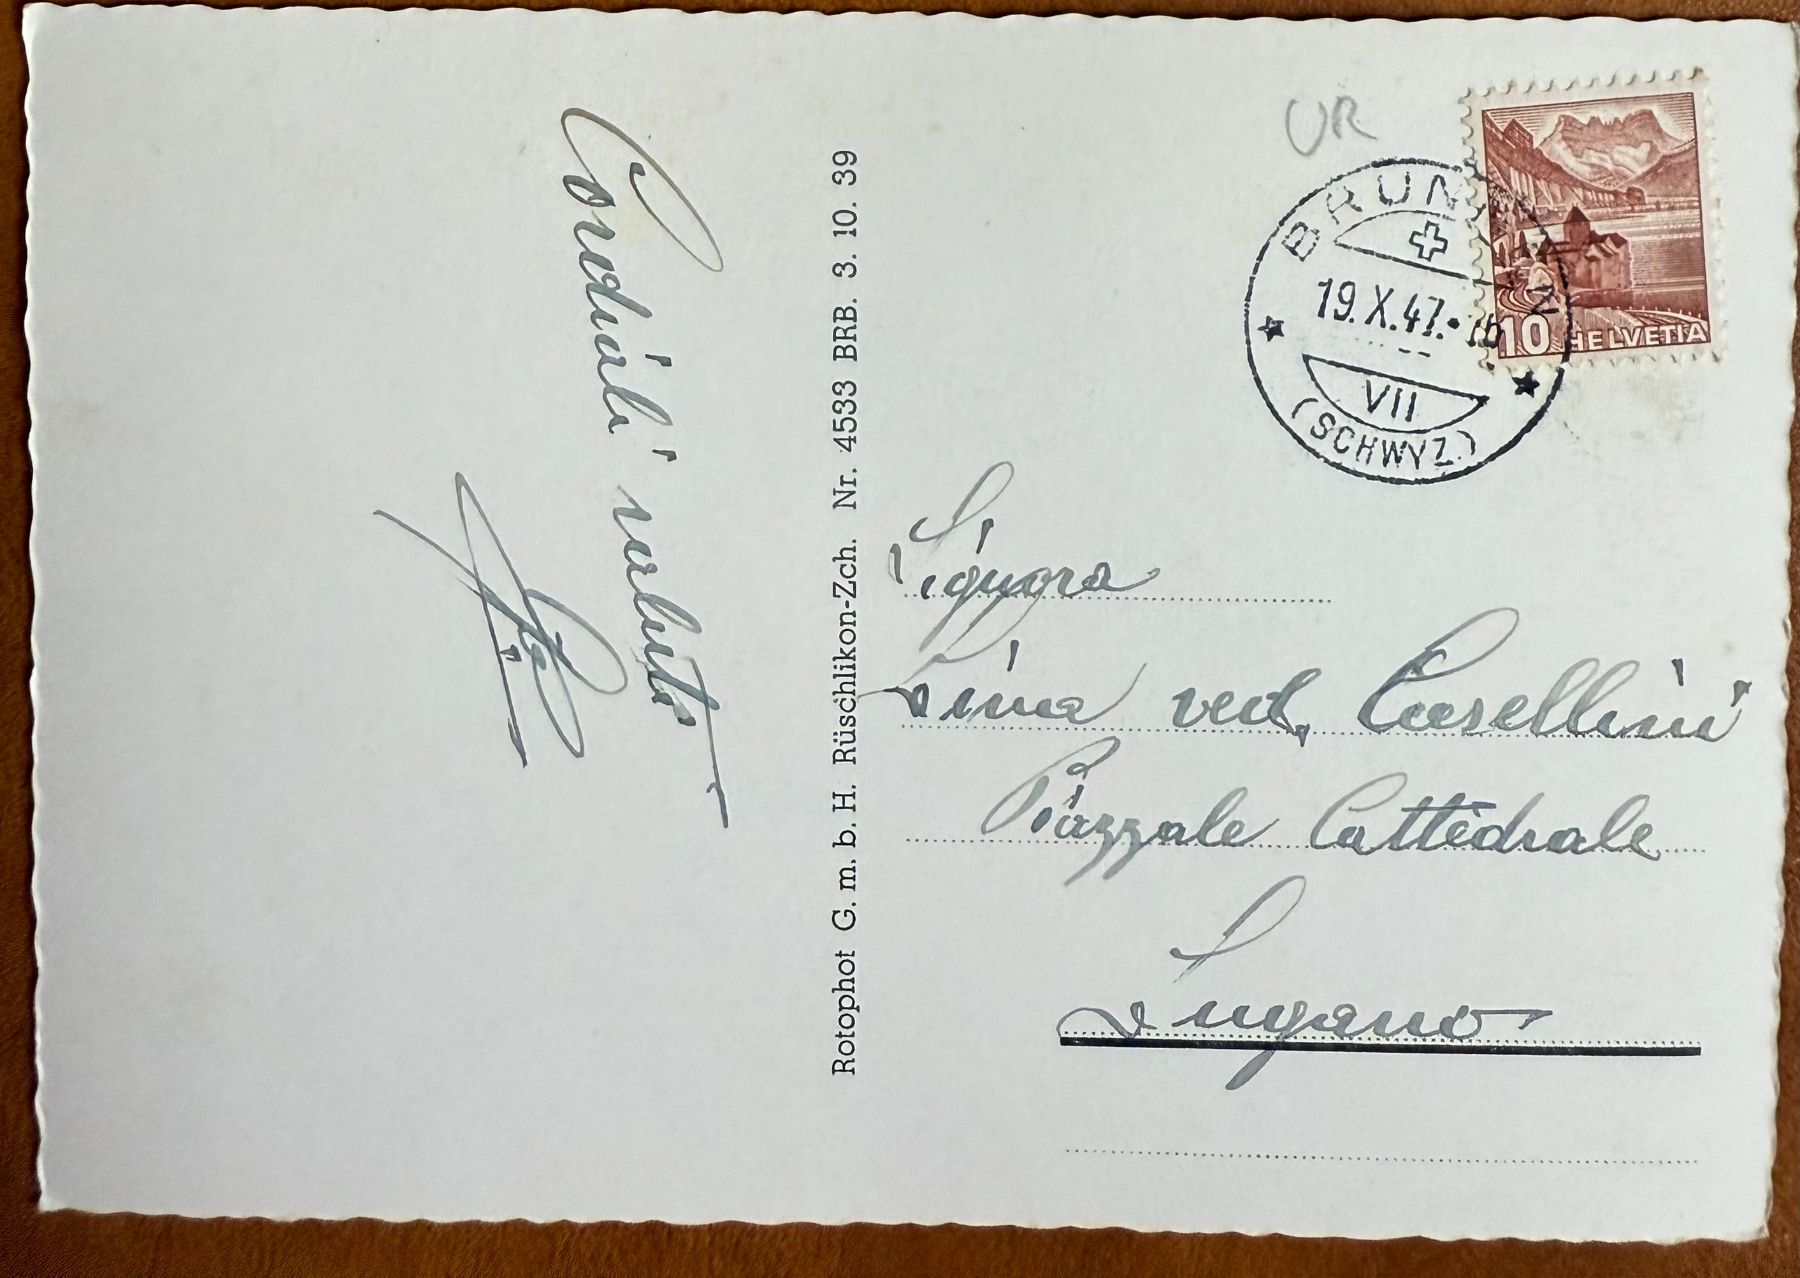 Cordiali saluti
Rotophot G. m. b. H. Rüschlikon-Zch. Nr. 4533 BRB. 3. 10. 39
UR
BRUNNEN
19.X.47.
VII
(SCHWYZ)
10 HELVETIA
Signora
Lina ved. Casellini
Piazzale Cattedrale
Lugano